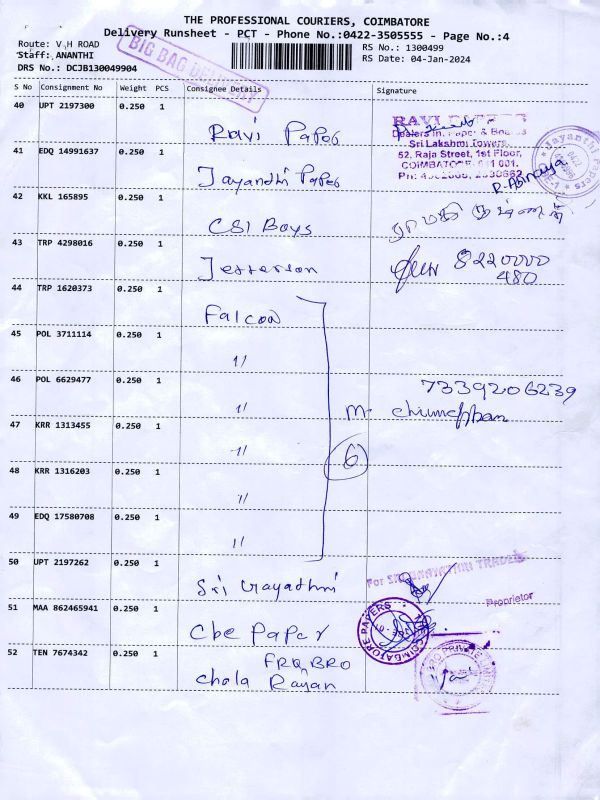 THE PROFESSIONAL COURIERS, COIMBATORE
Delivery Runsheet - PCT - Phone No.:0422-3505555 - Page No.:4
Route: V.H ROAD
RS No.: 1300499
Staff: ANANTHI
RS Date: 04-Jan-2024
DRS No.: DCJB130049904
BIG BAG DELIVERY
S No Consignment No Weight PCS Consignee Details Signature
40 UPT 2197300 0.250 1
Ravi Paper
RAVI
Dealers in. Paper & Boards
Sri Lakshmi Towers,
52, Raja Street, 1st Floor,
COIMBATORE
41 EDQ 14991637 0.250 1
Jayandhi Paper
R. Abinaya
Jayanthi Papers
42 KKL 165895 0.250 1
CSI Boys
43 TRP 4298016 0.250 1
Jefferson
8220000
480
44 TRP 1620373 0.250 1
Falcon
45 POL 3711114 0.250 1
"
46 POL 6629477 0.250 1
"
7339206239
M.
47 KRR 1313455 0.250 1
"
6
48 KRR 1316203 0.250 1
"
49 EDQ 17580708 0.250 1
"
50 UPT 2197262 0.250 1
Sri Gayathri
For SRI GAYATHRI TRADERS
Proprietor
51 MAA 862465941 0.250 1
Cbe Paper
COIMBATORE PAPERS
52 TEN 7674342 0.250 1
FRQ BRO
Chola Rayan